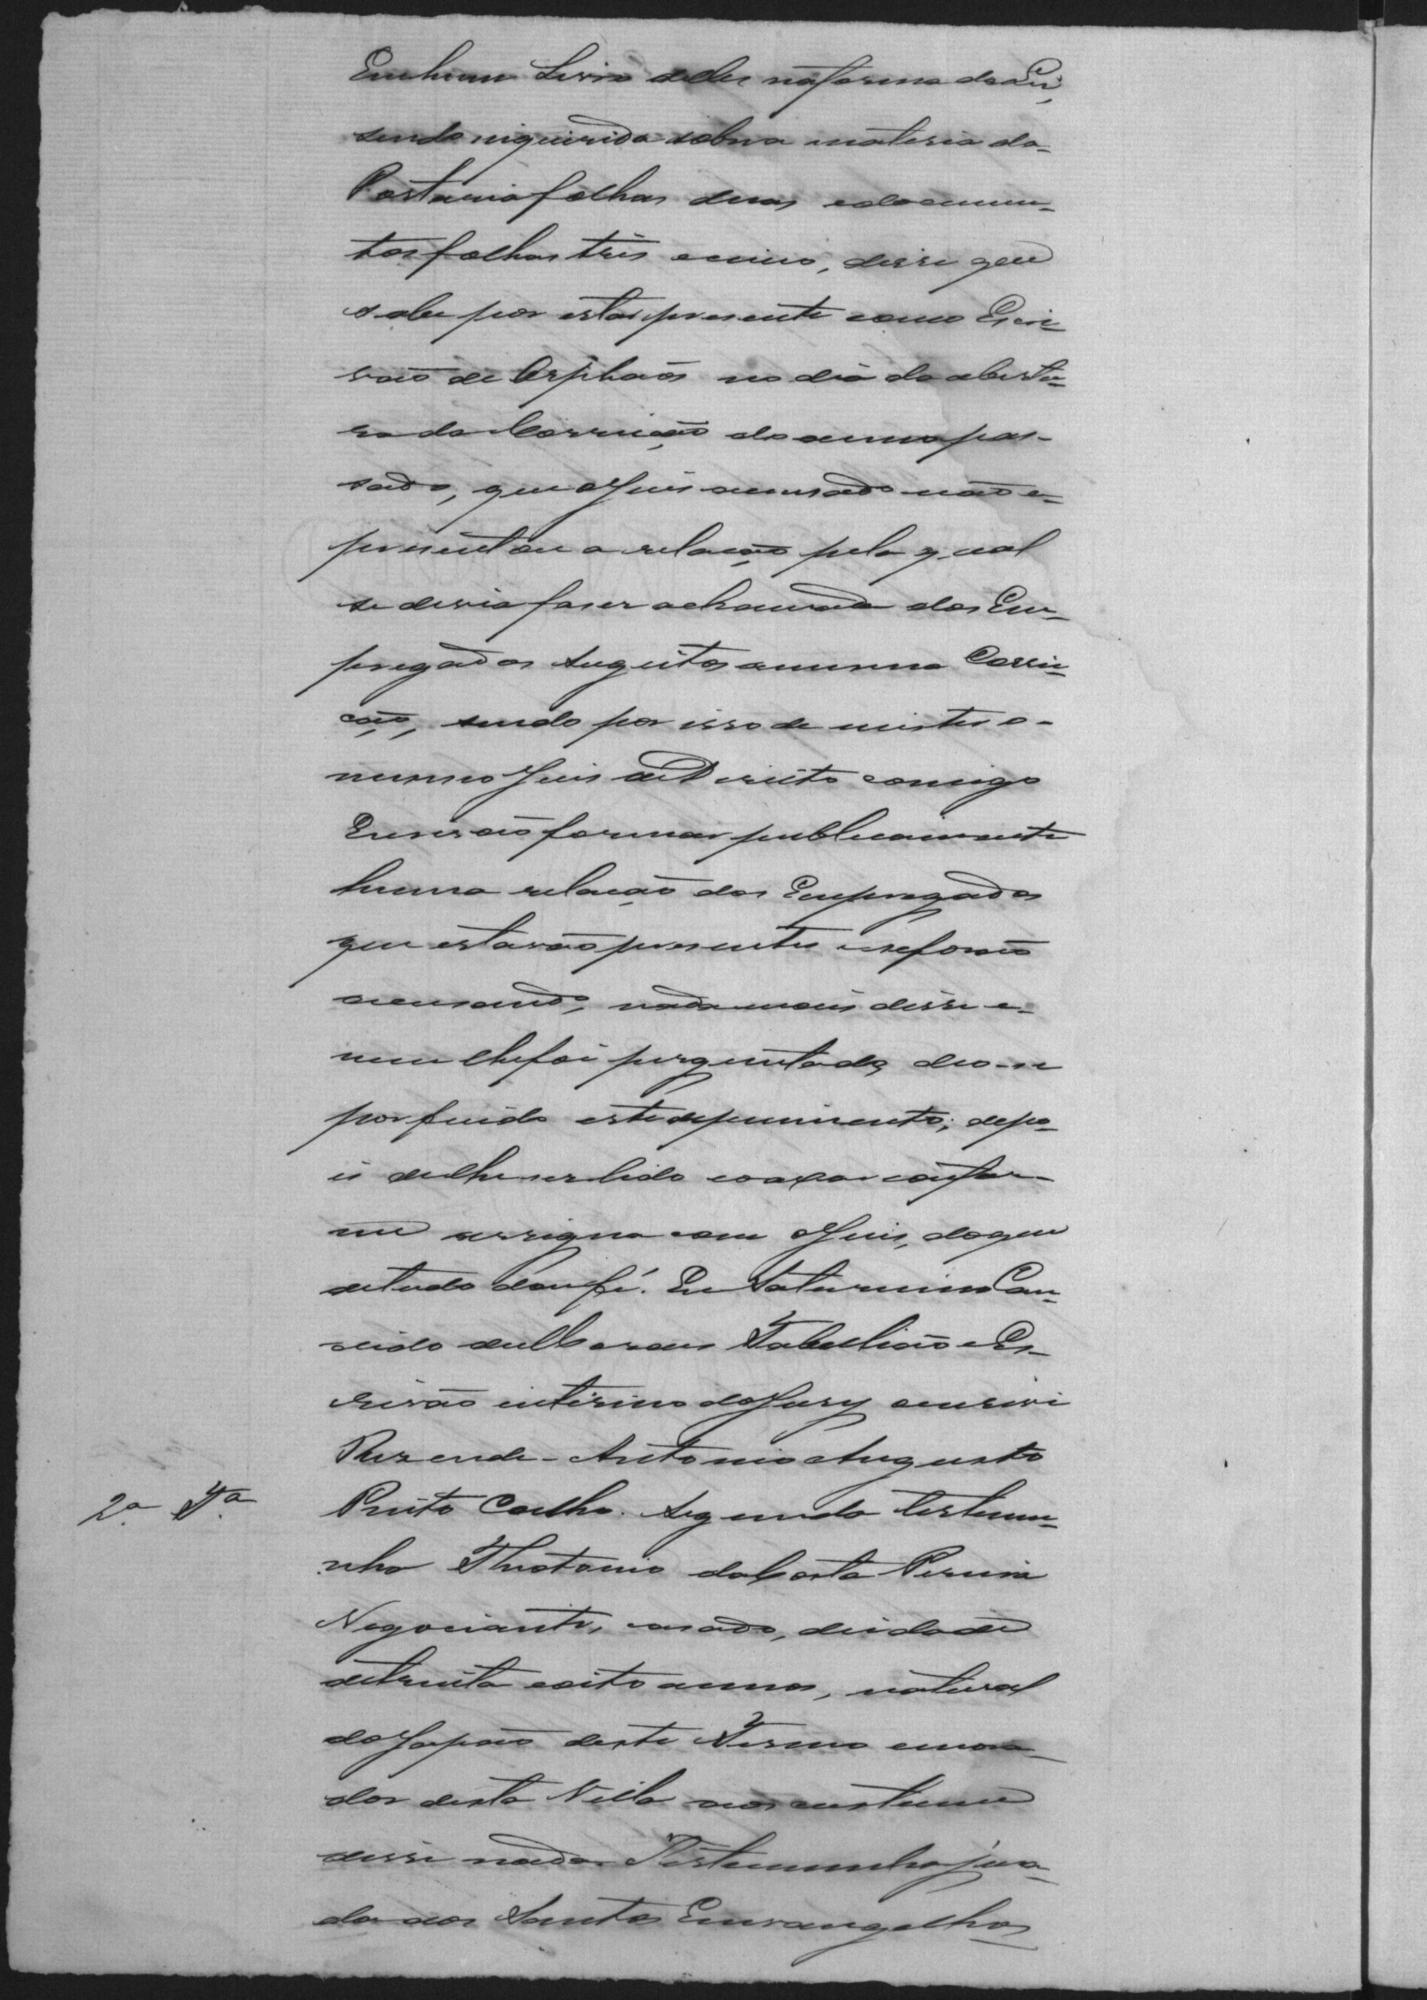 Em hum Livro delles na forma da Lei,
sendo inquirido sobre a materia da
Portaria folhas duas e documen-
tos folhas três e cinco, disse que
sabe por estar presente como Escri-
vão de Orphãos no dia da abertu-
ra da Correição do anno pas-
sado, que o Juis acusado não a-
presentou a relação pela qual
se devia faser a chamada dos Em-
pregados sugeitos a mesma Correi-
ção, sendo por isso de mister o
mesmo Juis de Direito comigo
Escrivão formar publicamente
huma relação dos Empregados
que estavão presentes e se forão
acusando, nada mais disse e
nem lhe foi perguntado, deo-se
por findo este depoimento; depo-
is de lhe ser lido e o achar confor-
me assigna com o Juis, do que
de tudo dou fé. Eu Saturnino Can-
dido de Moraes Tabellião e Es-
crivão interino do Jury escrevi
Resende - Antonio Augusto
2.ª T.ª Preito Coelho. Segunda testemu-
nha Theotonio da Costa Pereira
Negociante, casado, de idade
de trinta e oito annos, natural
do Japão deste Termo e mora-
dor desta Villa aos costumes
disse nada. Testemunha jura-
da aos Santos Envangelhos